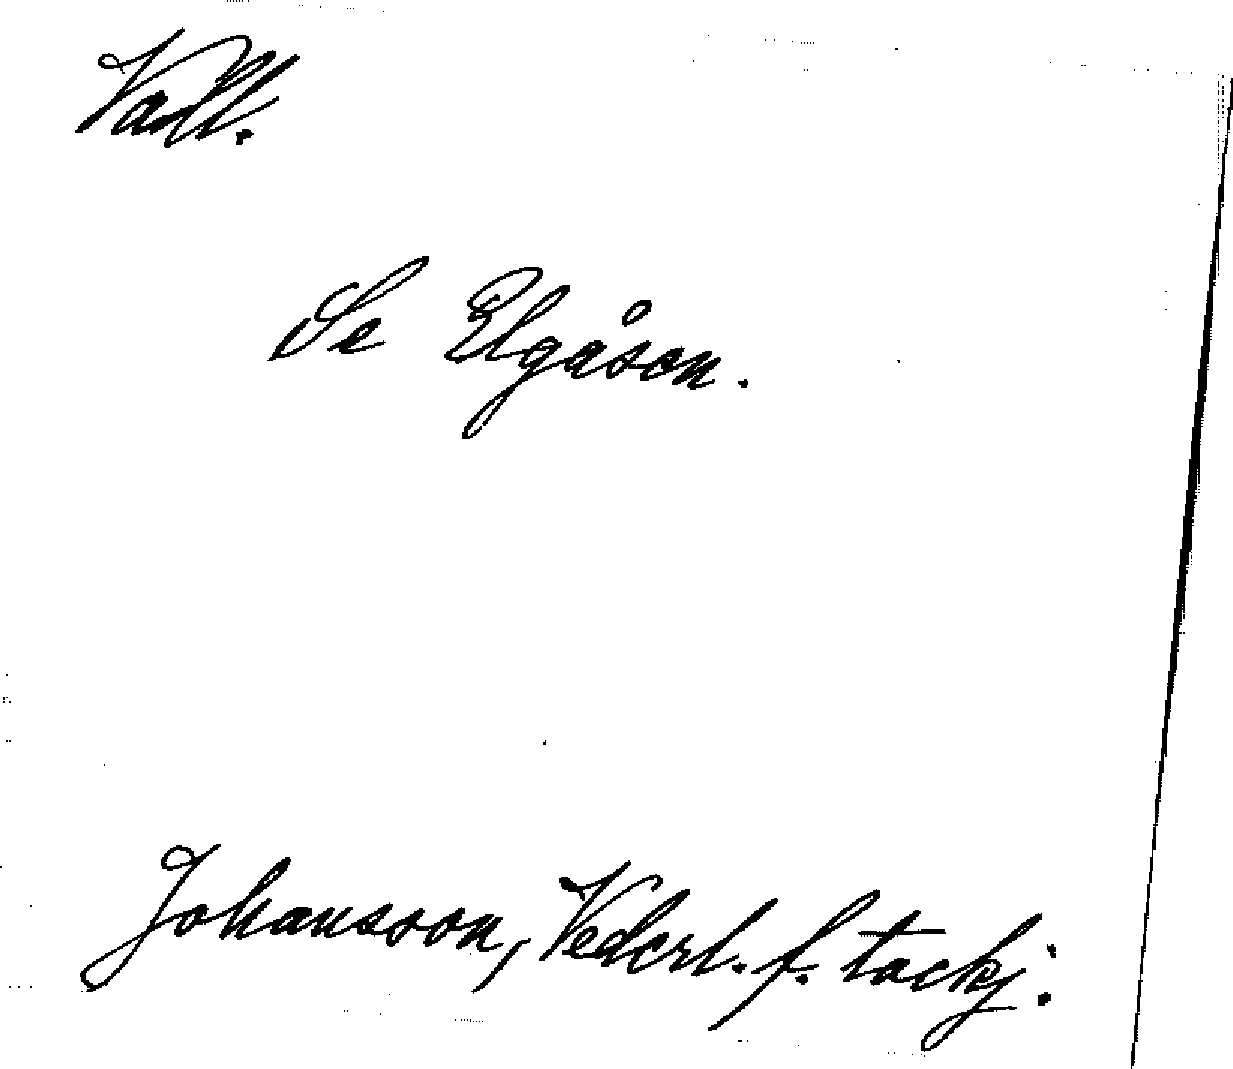 Vall.
Se Elgåson.
Johansson, Vederl. f. tackj: